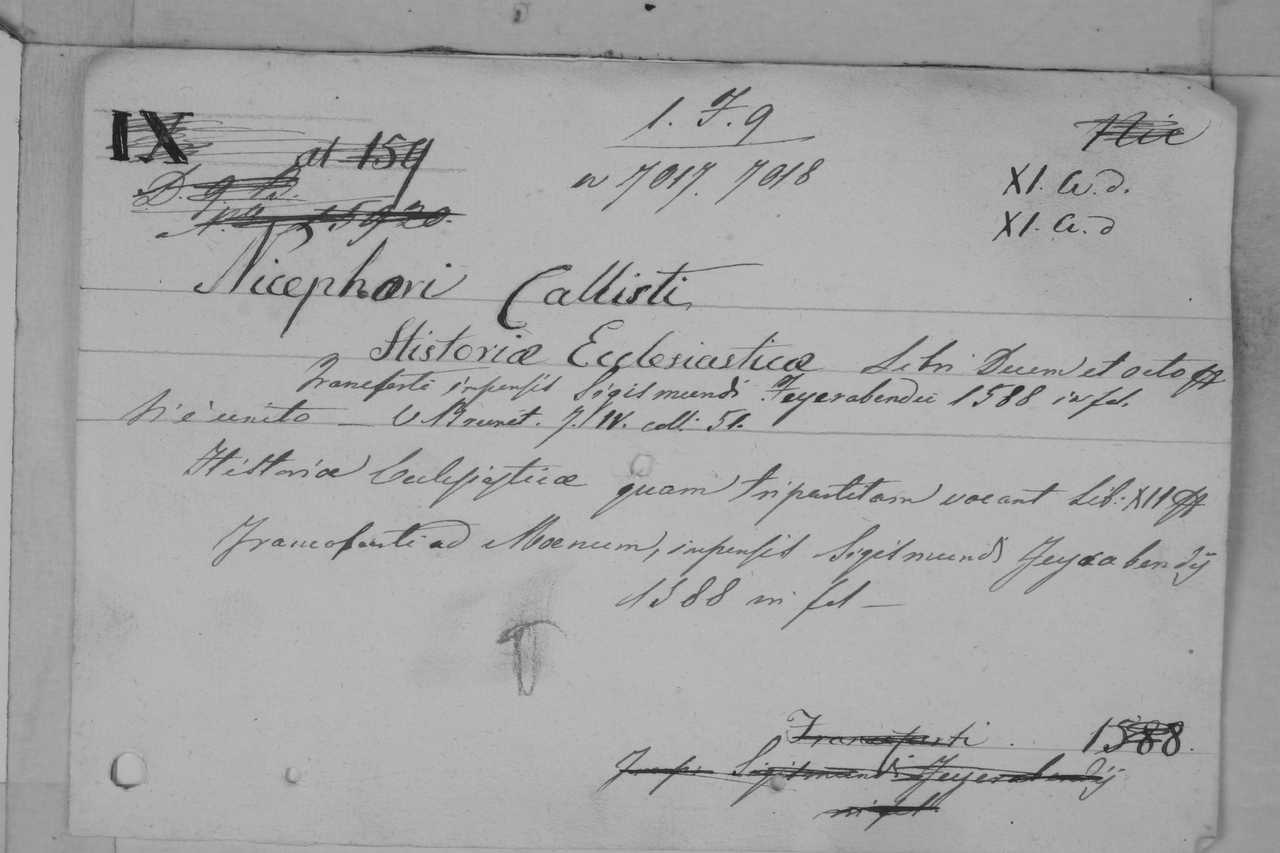 IX
al 159
1. F. 9
n 7017. 7018
Nic
XI. a. d.
XI. a. d
D. g.
15920.
Nicephori Callisti
Historiæ Ecclesiasticæ Libri Decem et octo
Francforti inpensis Sigismundi Feyerabendii 1588 in fol.
V Brunet. T. IV. coll. 51.
Historiæ Ecclesiasticæ quam tripartitam vocant Lib: XII
Francofurti ad Moenum, inpensis Sigismundi Feyrabendij
1588 in fol —
Francoforti 1588.
Inp. Sigismundi Feyerabendij
in fol.